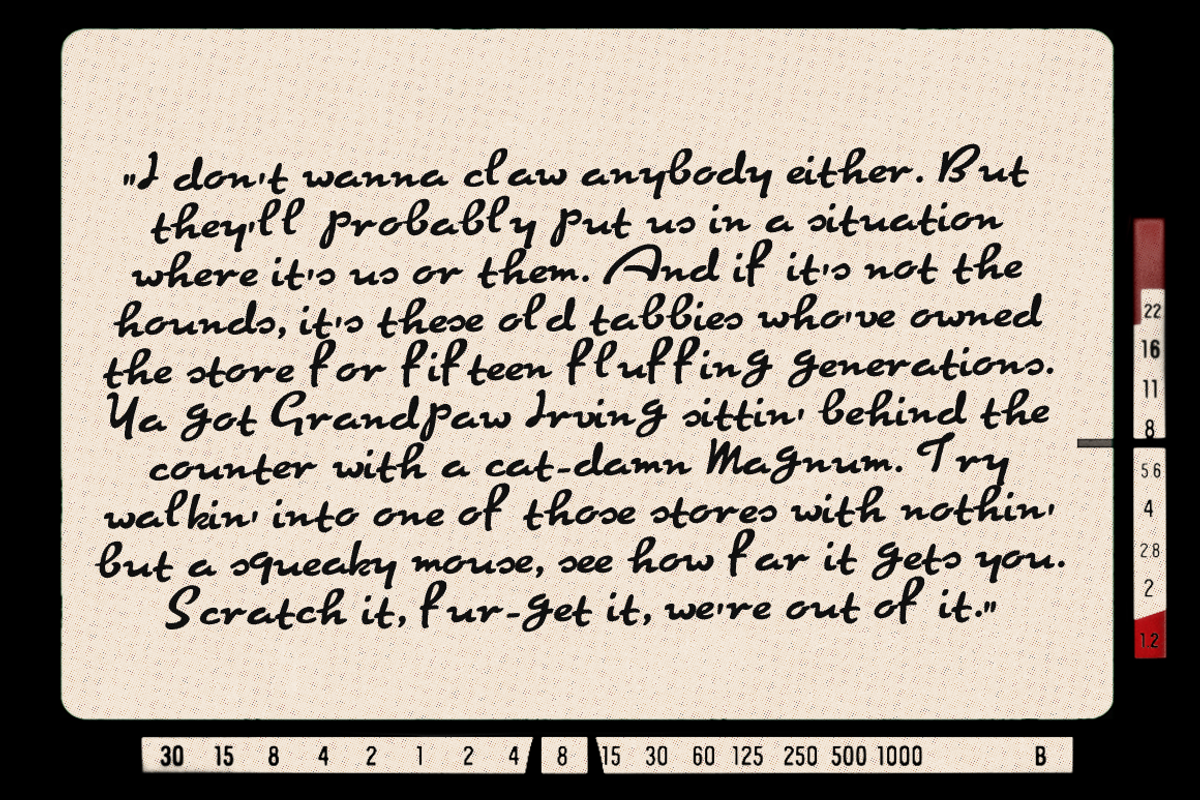 "I don't wanna claw anybody either. But
they'll probably put us in a situation
where it's us or them. And if it's not the
hounds, it's these old tabbies who've owned
the store for fifteen fluffing generations.
Ya got Grandpaw Irving sittin' behind the
counter with a cat-damn Magnum. Try
walkin' into one of those stores with nothin'
but a squeaky mouse, see how far it gets you.
Scratch it, fur-get it, we're out of it."
22
16
11
8
5 6
4
2.8
2
1.2
30 15 8 4 2 1 2 4 8 15 30 60 125 250 500 1000 B